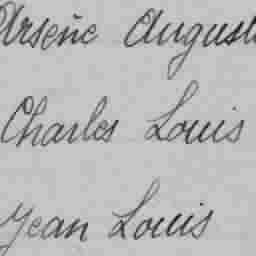 Arsène August
Charles Louis
Jean Louis